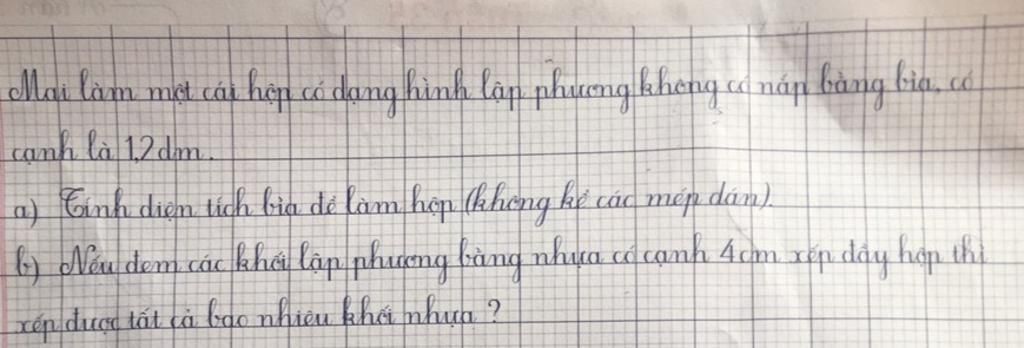 Mai làm một cái hộp có dạng hình lập phương không có nắp bằng bìa, có
cạnh là 1,2 dm.
a) Tính diện tích bìa để làm hộp (không kể các mép dán).
b) Nếu đem các khối lập phương bằng nhựa có cạnh 4 cm xếp đầy hộp thì
xếp được tất cả bao nhiêu khối nhựa ?